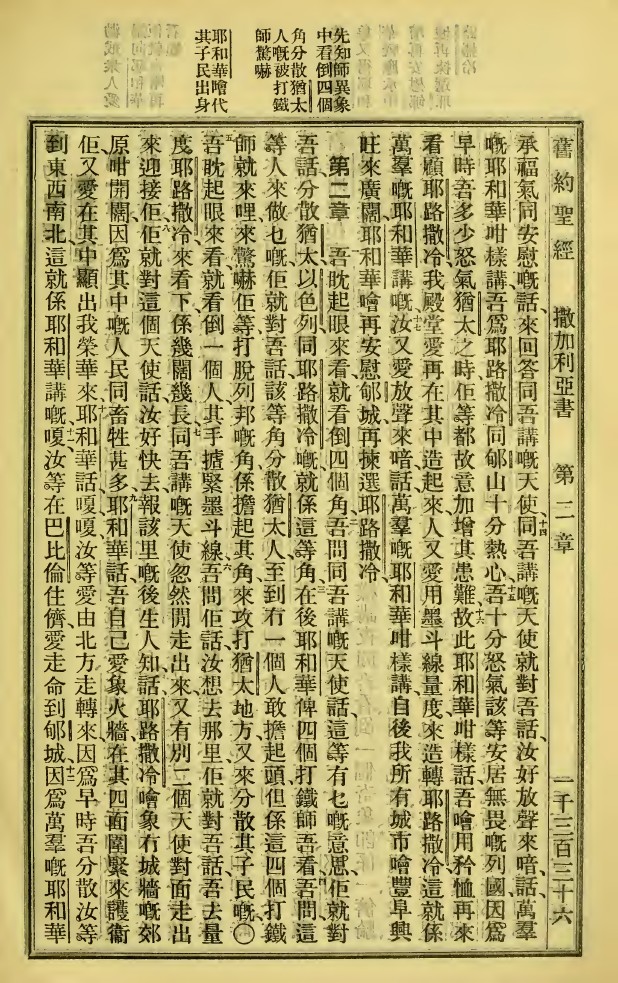 先知師異象
中看倒四個
角分散猶太
人嘅被打鐵
師驚嚇
耶和華噲代
其子民出身
舊約聖經 撒加利亞書 第二章 一千三百三十六
承福氣同安慰嘅話來回答同吾講嘅天使十四同吾講嘅天使就對吾話汝好放聲來喑話萬羣
嘅耶和華咁樣講吾爲耶路撒冷同郇山十分熱心十五吾十分怒氣該等安居無畏嘅列國因爲
早時吾多少怒氣猶太之時佢等都故意加增其患難十六故此耶和華咁樣話吾噲用矜恤再來
看顧耶路撒冷我殿堂愛再在其中造起來人又愛用墨斗線量度來造轉耶路撒冷這就係
萬羣嘅耶和華講嘅十七汝又愛放聲來喑話萬羣嘅耶和華咁樣講自後我所有城市噲豐阜興
旺來廣闊耶和華噲再安慰郇城再揀選耶路撒冷
第二章 吾眈起眼來看就看倒四個角二吾問同吾講嘅天使話這等有乜嘅意思佢就對
吾話分散猶太以色列同耶路撒冷嘅就係這等角三在後耶和華俾四個打鐵師吾看四吾問這
等人來做乜嘅佢就對吾話該等角分散猶太人至到冇一個人敢擔起頭但係這四個打鐵
師就來哩來驚嚇佢等打脫列邦嘅角係擔起其角來攻打猶太地方又來分散其子民嘅〇
五吾眈起眼來看就看倒一個人其手摣緊墨斗線六吾問佢話汝想去那里佢就對吾話吾去量
度耶路撒冷來看下係幾闊幾長七同吾講嘅天使忽然閒走出來又有別二個天使對面走出
來迎接佢八佢就對這個天使話汝好快去報該里嘅後生人知話耶路撒冷噲象冇城牆嘅郊
原咁開闊因爲其中嘅人民同畜牲甚多九耶和華話吾自己愛象火牆在其四面圍緊來護衞
佢又愛在其中顯出我榮華來十耶和華話嗄嗄汝等愛由北方走轉來因爲早時吾分散汝等
到東西南北這就係耶和華講嘅十一嗄汝等在巴比倫住儕愛走命到郇城十二因爲萬羣嘅耶和華